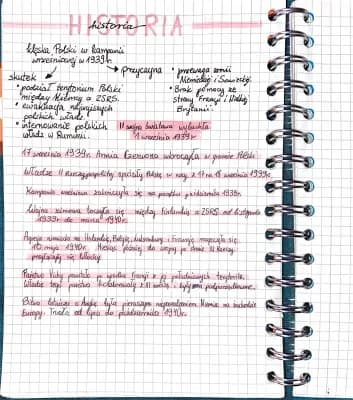 HISTORIA
historia
klęska Polski w kampanii
wrześniowej w 1939 r.
skutek
przyczyna
• podział terytorium Polski
między Niemcy a ZSRS.
• ewakuacja najwyższych
polskich władz.
• internowanie polskich
władz w Rumunii.
• przewaga armii
Niemieckiej i Sowieckiej.
• Brak pomocy ze
strony Francji i Wielkiej
Brytanii.
II wojna światowa wybuchła
1 września 1939 r.
17 września 1939r. Armia Czerwona wkroczyła w granice Polski.
Władze II Rzeczypospolitej Polskiej w nocy z 17 na 18 września 1939r.
Kampania wrześniowa zakończyła się na początku października 1939r.
Wojna zimowa toczyła się między Finlandią a ZSRS od listopada
1939r do marca 1940r.
Agresja niemiecka na Holandię, Belgię, Luksemburg i Francję rozpoczęła się
10 maja 1940r. Miesiąc później do wojny po stronie III Rzeszy
przyłączyły się Włochy.
Państwo Vichy powstało po upadku Francji z jej południowych terytoriów.
Władze tego państwa kolaborowały z III Rzeszą i były jej podporządkowane.
Bitwa lotnicza o Anglię była pierwszym niepowodzeniem Niemiec na zachodzie
Europy. Trwała od lipca do października 1940r.